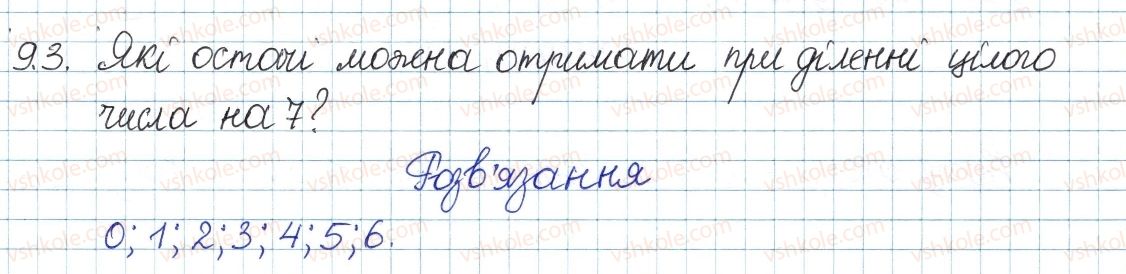 9.3. Які остачі можна отримати при діленні цілого
числа на 7?
Розв'язання
0; 1; 2; 3; 4; 5; 6.